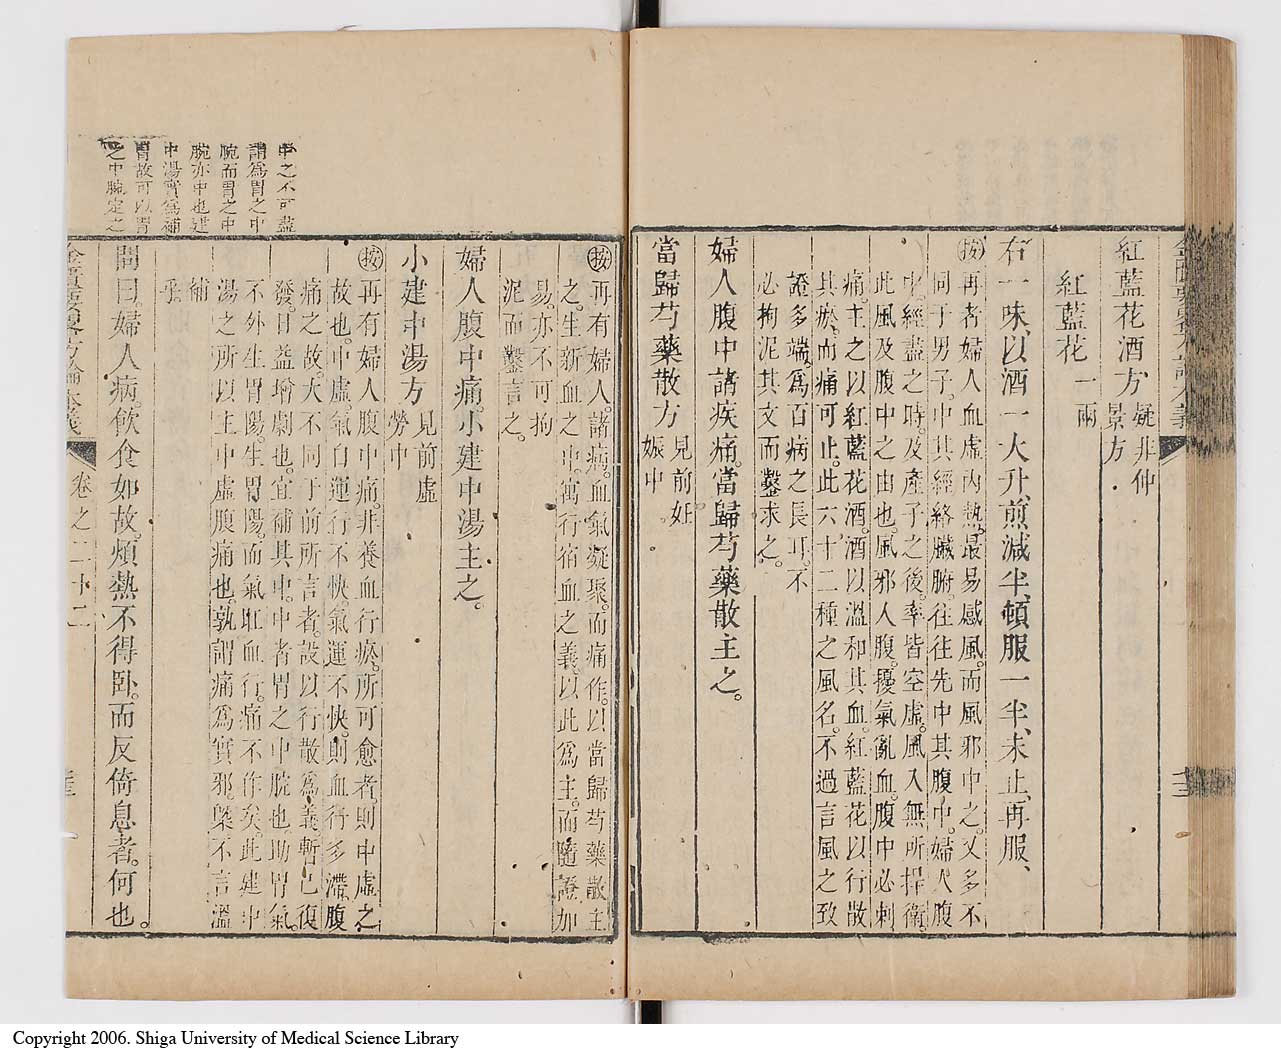 紅藍花酒方 疑非仲
景方
紅藍花 一兩
右一味、以酒一大升、煎減半、頓服一半、未止、再服、
按再者婦人血虛內熱。最易感風。而風邪中之。又多不
同于男子。中其經絡臟腑。往往先中其腹中。婦人腹
中。經盡之時。及產子之後。率皆空虛。風入無所捍衛。
此風及腹中之由也。風邪入腹。擾氣亂血。腹中必刺
痛。主之以紅藍花酒。酒以溫和其血。紅藍花以行散
其瘀。而痛可止。此六十二種之風名。不過言風之致
證多端。爲百病之長耳。不
必拘泥其文而鑿求之。
婦人腹中諸疾痛。當歸芍藥散主之。
當歸芍藥散方 見前妊
娠中。
按再有婦人。諸病。血氣凝聚。而痛作。以當歸芍藥散主
之。生新血之中。寓行宿血之義。以此爲主。而隨證加
易。亦不可拘
泥而鑿言之。
婦人腹中痛。小建中湯主之。
小建中湯方 見前虛
勞中
按再有婦人腹中痛。非養血行瘀。所可愈者。則中虛之
故也。中虛。氣自運行不快。氣運不快。則血行多滯。腹
痛之故。大不同于前所言者。設以行散爲義。暫已復
發。日益增劇也。宜補其中。中者胃之中脘也。助胃氣。
不外生胃陽。生胃陽。而氣旺血行。痛不作矣。此建中
湯之所以主中虛腹痛也。孰謂痛爲實邪。槩不言溫
補
乎
問曰。婦人病。飲食如故。煩熱不得臥。而反倚息者。何也。
中之不可盡
謂爲胃之中
脘而胃之中
脘亦中也建
中湯實爲補
胃故可以胃
之中脘定之
金匱要畧方論本義
卷之二十二